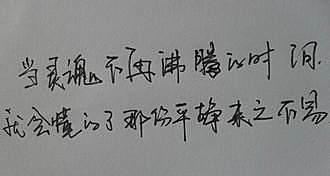 当灵魂不再沸腾的时间.
我会晓的了那份平静来之不易